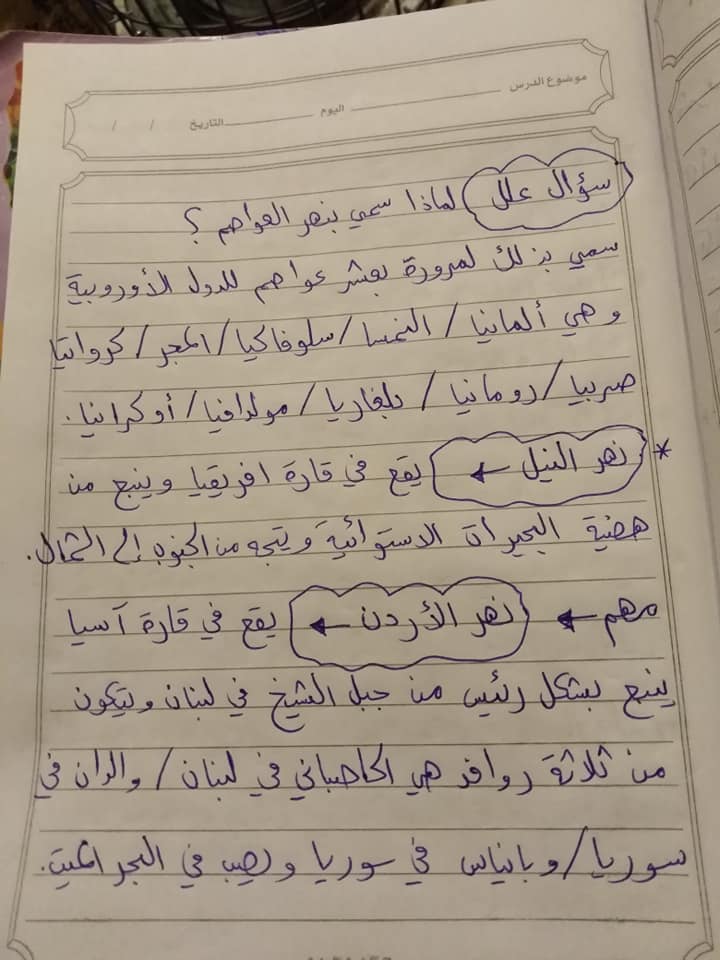 موضوع الدرس اليوم التاريخ / /
سؤال علل لماذا سمي بنهر العواصم ؟
سمي بذلك لمرورة بعشر عواصم للدول الأوروبية
وهي ألمانيا / النمسا / سلوفاكيا / المجر / كرواتيا
صربيا / رومانيا / بلغاريا / مولدافيا / أوكرانيا .
* نهر النيل ← يقع في قارة افريقيا وينبع من
هضبة البحيرات الاستوائية ويتجه من الجنوب إلى الشمال .
مهم ← نهر الأردن ← يقع في قارة آسيا
ينبع بشكل رئيس من جبل الشيخ في لبنان ويتكون
من ثلاثة روافد هي الحاصباني في لبنان / والدان في
سوريا / وبانياس في سوريا ويصب في البحر الميت .